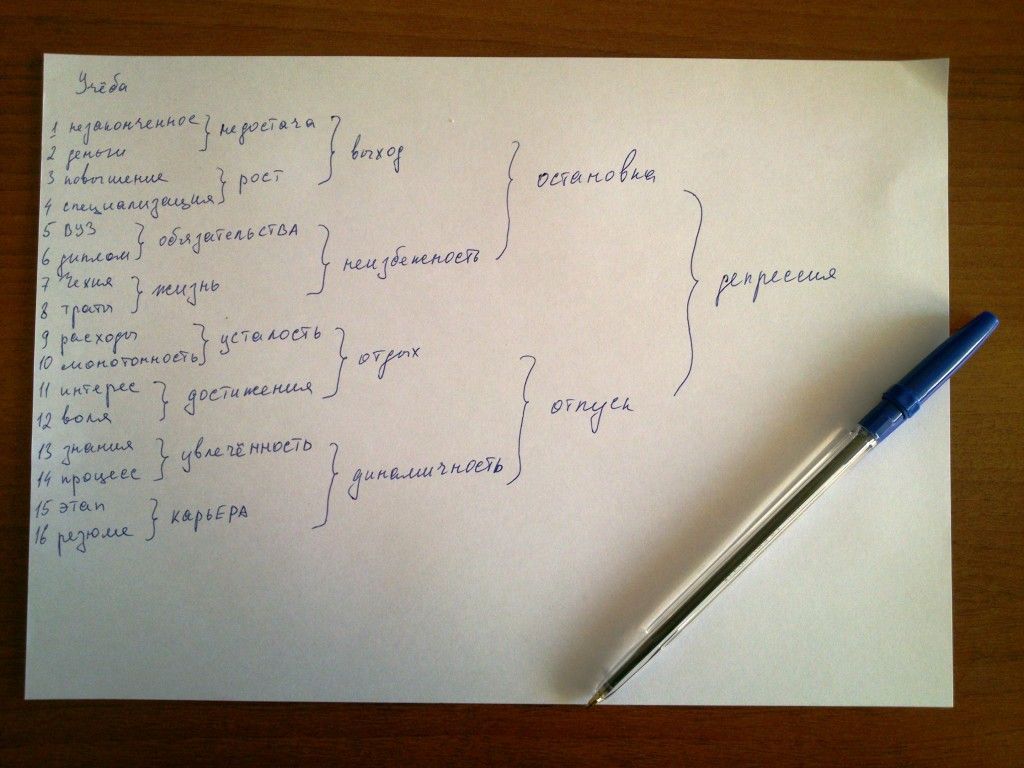 Учёба
1 незаконченное } недостача } выход } остановка } депрессия
2 деньги
3 повышение } рост
4 специализация
5 ВУЗ } обязательства } неизбежность
6 диплом
7 Чехия } жизнь
8 траты
9 расходы } усталость } отдых } отпуск
10 монотонность
11 интерес } достижения
12 воля
13 знания } увлечённость } динамичность
14 процесс
15 этап } карьЕРА
16 резюме